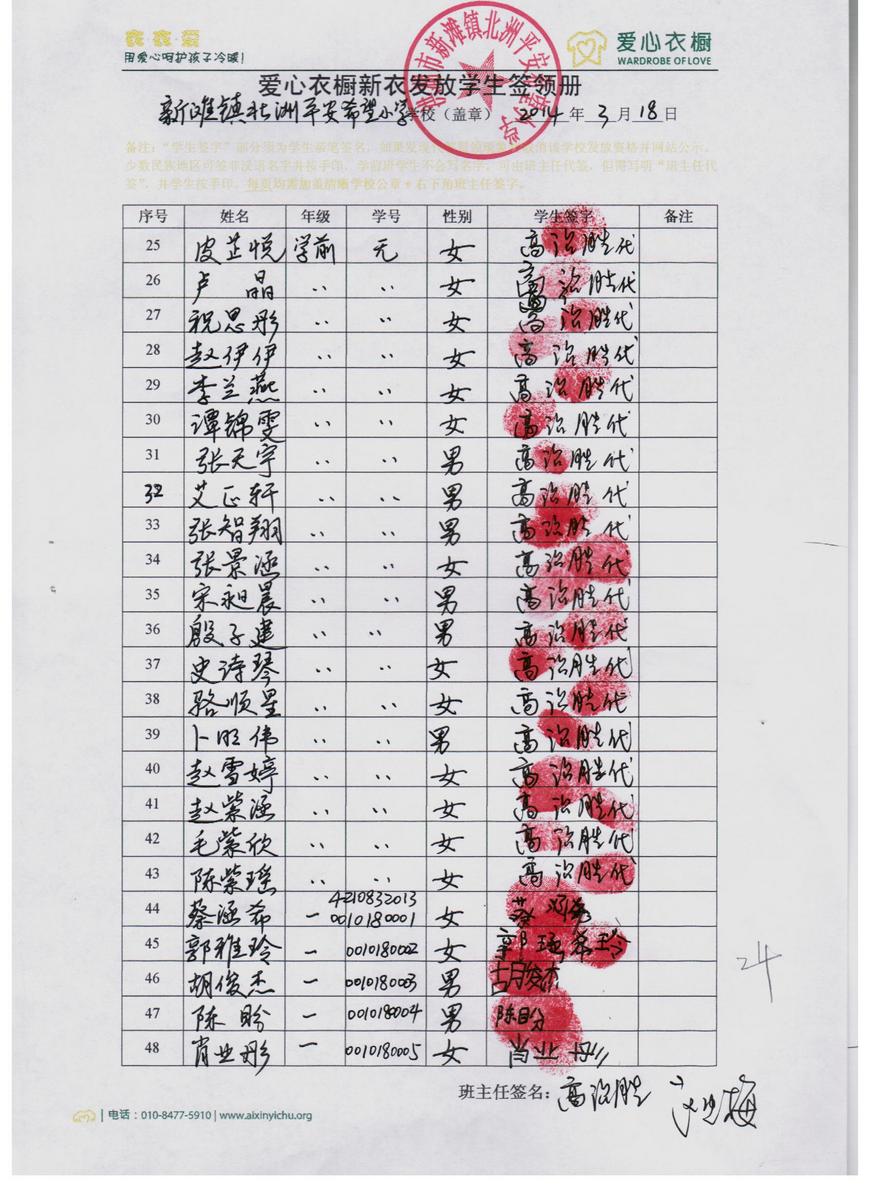 衣·衣·爱
用爱心呵护孩子冷暖!
爱心衣橱
WARDROBE OF LOVE
爱心衣橱新衣发放学生签领册
新滩镇北洲平安希望小学学校（盖章） 2014 年 3 月 18 日
备注：“学生签字”部分须为学生亲笔签名，如果发现代
消该学校发放资格并网站公示。
少数民族地区可签非汉语名字并按手印，学前班学生不会写名字，可由班主任代签，但需写明“班主任代
签”，并学生按手印。每页均需加盖清晰学校公章+右下角班主任签字。
序号 姓名 年级 学号 性别 学生签字 备注
25 皮芷悦 学前 无 女 高治胜代
26 卢晶 ‥ ‥ 女 高治胜代
27 祝思彤 ‥ ‥ 女 高治胜代
28 赵伊伊 ‥ ‥ 女 高治胜代
29 李兰燕 ‥ ‥ 女 高治胜代
30 谭锦雯 ‥ ‥ 女 高治胜代
31 张天宇 ‥ ‥ 男 高治胜代
32 艾正轩 ‥ ‥ 男 高治胜代
33 张智翔 ‥ ‥ 男 高治胜代
34 张景涵 ‥ ‥ 女 高治胜代
35 宋昶晨 ‥ ‥ 男 高治胜代
36 殷子建 ‥ ‥ 男 高治胜代
37 史诗琴 ‥ ‥ 女 高治胜代
38 骆顺星 ‥ ‥ 女 高治胜代
39 卜明伟 ‥ ‥ 男 高治胜代
40 赵雪婷 ‥ ‥ 女 高治胜代
41 赵紫涵 ‥ ‥ 女 高治胜代
42 毛紫欣 ‥ ‥ 女 高治胜代
43 陈紫瑶 ‥ ‥ 女 高治胜代
44 蔡涵希 一 4210832013 0010180001 女
45 郭雅玲 一 0010180002 女
46 胡俊杰 一 0010180003 男 胡俊杰
47 陈盼 一 0010180004 男 陈盼
48 肖业彤 一 0010180005 女 肖业彤
24
班主任签名：高治胜
电话：010-8477-5910 | www.aixinyichu.org